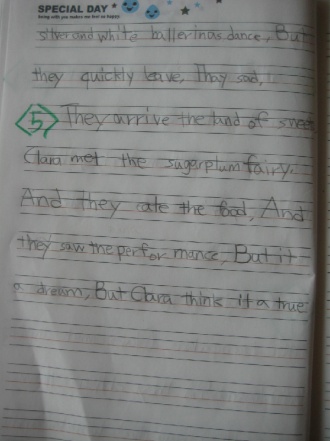 SPECIAL DAY
being with you makes me feel so happy
silver and white ballerinas dance, But
they quickly leave, They sad,
5 They arrive the land of sweet
Clara met the sugarplum fairy.
And they eate the food, And
they saw the perfor mance, But it
a dream, But Clara think it a true